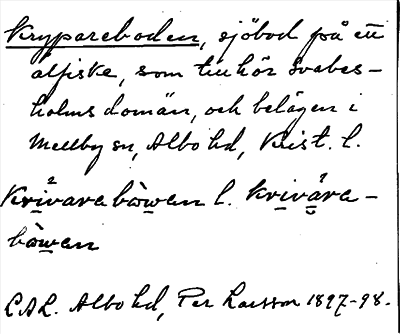 Krypareboden, sjöbod på ett
ålfiske, som tillhör Svabes-
holms domän, och belägen i
Mellby sn, Albo hd, Krist. l.
Krivarabòwen l. krivära-
bòwen
LAL. Albo hd, Per Larsson 1897-98.